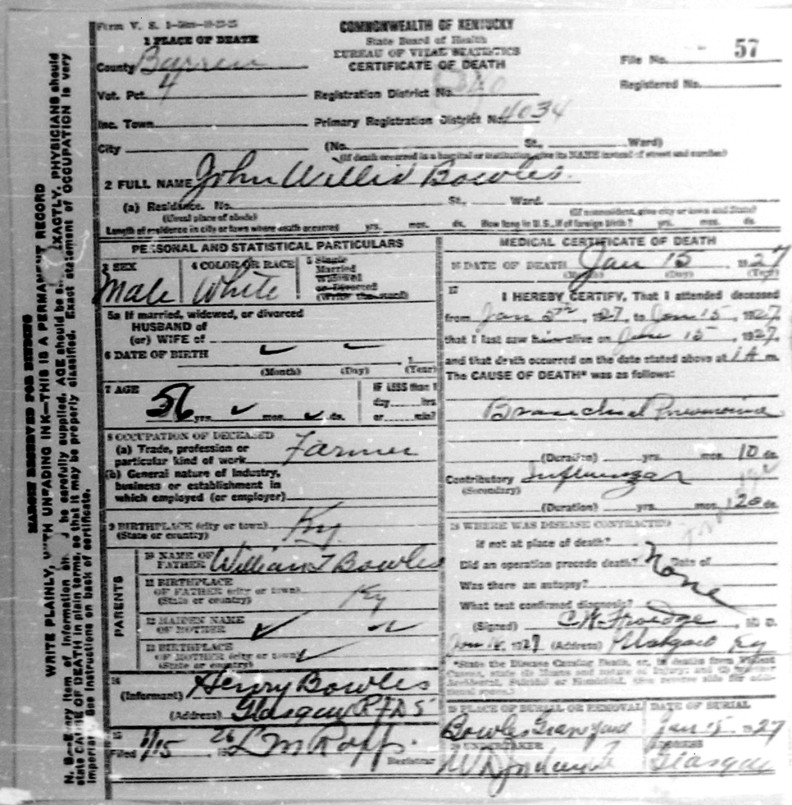 Form V. S.
COMMONWEALTH OF KENTUCKY
State Board of Health
BUREAU OF VITAL STATISTICS
CERTIFICATE OF DEATH
1 PLACE OF DEATH
County Barren
File No. 57
Vot. Pct. 4
Registration District No.
Registered No.
Inc. Town
Primary Registration District No. 4034
City (No. St., Ward)
(If death occurred in a hospital or institution, give its NAME instead of street and number)
2 FULL NAME John Willis Bowles
(a) Residence. No. St., Ward.
(Usual place of abode) (If nonresident, give city or town and State)
Length of residence in city or town where death occurred yrs. mos. ds. How long in U.S., if of foreign birth? yrs. mos. ds.
PERSONAL AND STATISTICAL PARTICULARS
3 SEX 4 COLOR OR RACE 5 Single Married Widowed or Divorced (Write the word)
Male White
5a If married, widowed, or divorced
HUSBAND of
(or) WIFE of
6 DATE OF BIRTH
(Month) (Day) (Year)
7 AGE 56 yrs. mos. ds.
IF LESS than 1
day hrs.
or min?
8 OCCUPATION OF DECEASED
(a) Trade, profession or
particular kind of work Farmer
(b) General nature of industry,
business or establishment in
which employed (or employer)
9 BIRTHPLACE (city or town)
(State or country) Ky
PARENTS
10 NAME OF
FATHER William T Bowles
11 BIRTHPLACE
OF FATHER (city or town)
(State or country) Ky
12 MAIDEN NAME
OF MOTHER
13 BIRTHPLACE
OF MOTHER (city or town)
(State or country)
14
(Informant) Henry Bowles
(Address) Glasgow
15
Filed 1/15 26
Registrar
MEDICAL CERTIFICATE OF DEATH
16 DATE OF DEATH Jan 15 1927
(Month) (Day) (Year)
17
I HEREBY CERTIFY, That I attended deceased
from Jan 5th, 1927, to Jan 15, 1927,
that I last saw him alive on Jan 15, 1927,
and that death occurred on the date stated above at 1 A m.
The CAUSE OF DEATH* was as follows:
Bronchial Pneumonia
(Duration) yrs. mos. 10 ds.
Contributory Influenza
(Secondary)
(Duration) yrs. mos. 20 ds.
18 WHERE WAS DISEASE CONTRACTED
if not at place of death?
Did an operation precede death? None Date of
Was there an autopsy?
What test confirmed diagnosis?
(Signed) M. D.
1927 (Address) Glasgow Ky
*State the Disease Causing Death, or, in deaths from Violent
Causes, state (1) Means and Nature of Injury; and (2) whether
Accidental, Suicidal or Homicidal. (See reverse side for addi-
tional space.)
19 PLACE OF BURIAL OR REMOVAL DATE OF BURIAL
Bowles Graveyard Jan 15 1927
20 UNDERTAKER ADDRESS
Glasgow
MARGIN RESERVED FOR BINDING
WRITE PLAINLY, WITH UNFADING INK—THIS IS A PERMANENT RECORD
N. B.—Every item of information should be carefully supplied. AGE should be stated EXACTLY. PHYSICIANS should
state CAUSE OF DEATH in plain terms, so that it may be properly classified. Exact statement of OCCUPATION is very
important. See instructions on back of certificate.